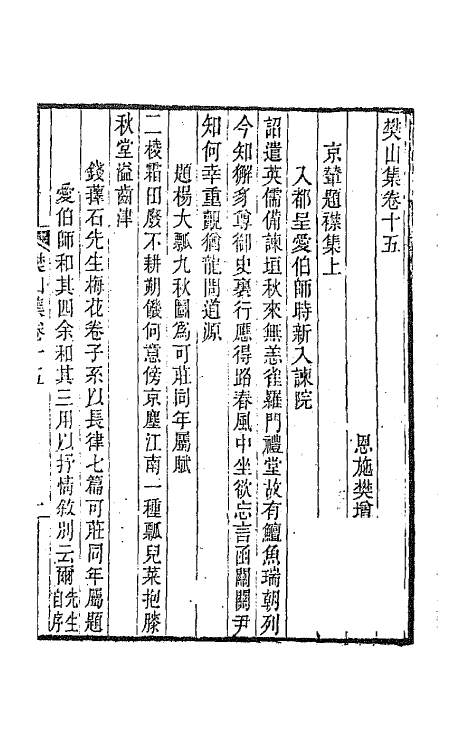 樊山集卷十五
恩施樊增
京輦題襟集上
入都呈愛伯師時新入諫院
詔遣英儒備諫垣秋來無恙雀羅門禮堂故有鱣魚瑞朝列
今知獬豸尊御史裏行應得路春風中坐欲忘言函關關尹
知何幸重觀猶龍問道源
題楊大瓢九秋圖為可莊同年屬賦
二棱霜田廢不耕朔饑何意傍京塵江南一種瓢兒菜抱膝
秋堂溢齒津
錢蘀石先生梅花卷子系以長律七篇可莊同年屬題
愛伯師和其四余和其三用以抒情敘別云爾先生自序
樊山集卷十五
一